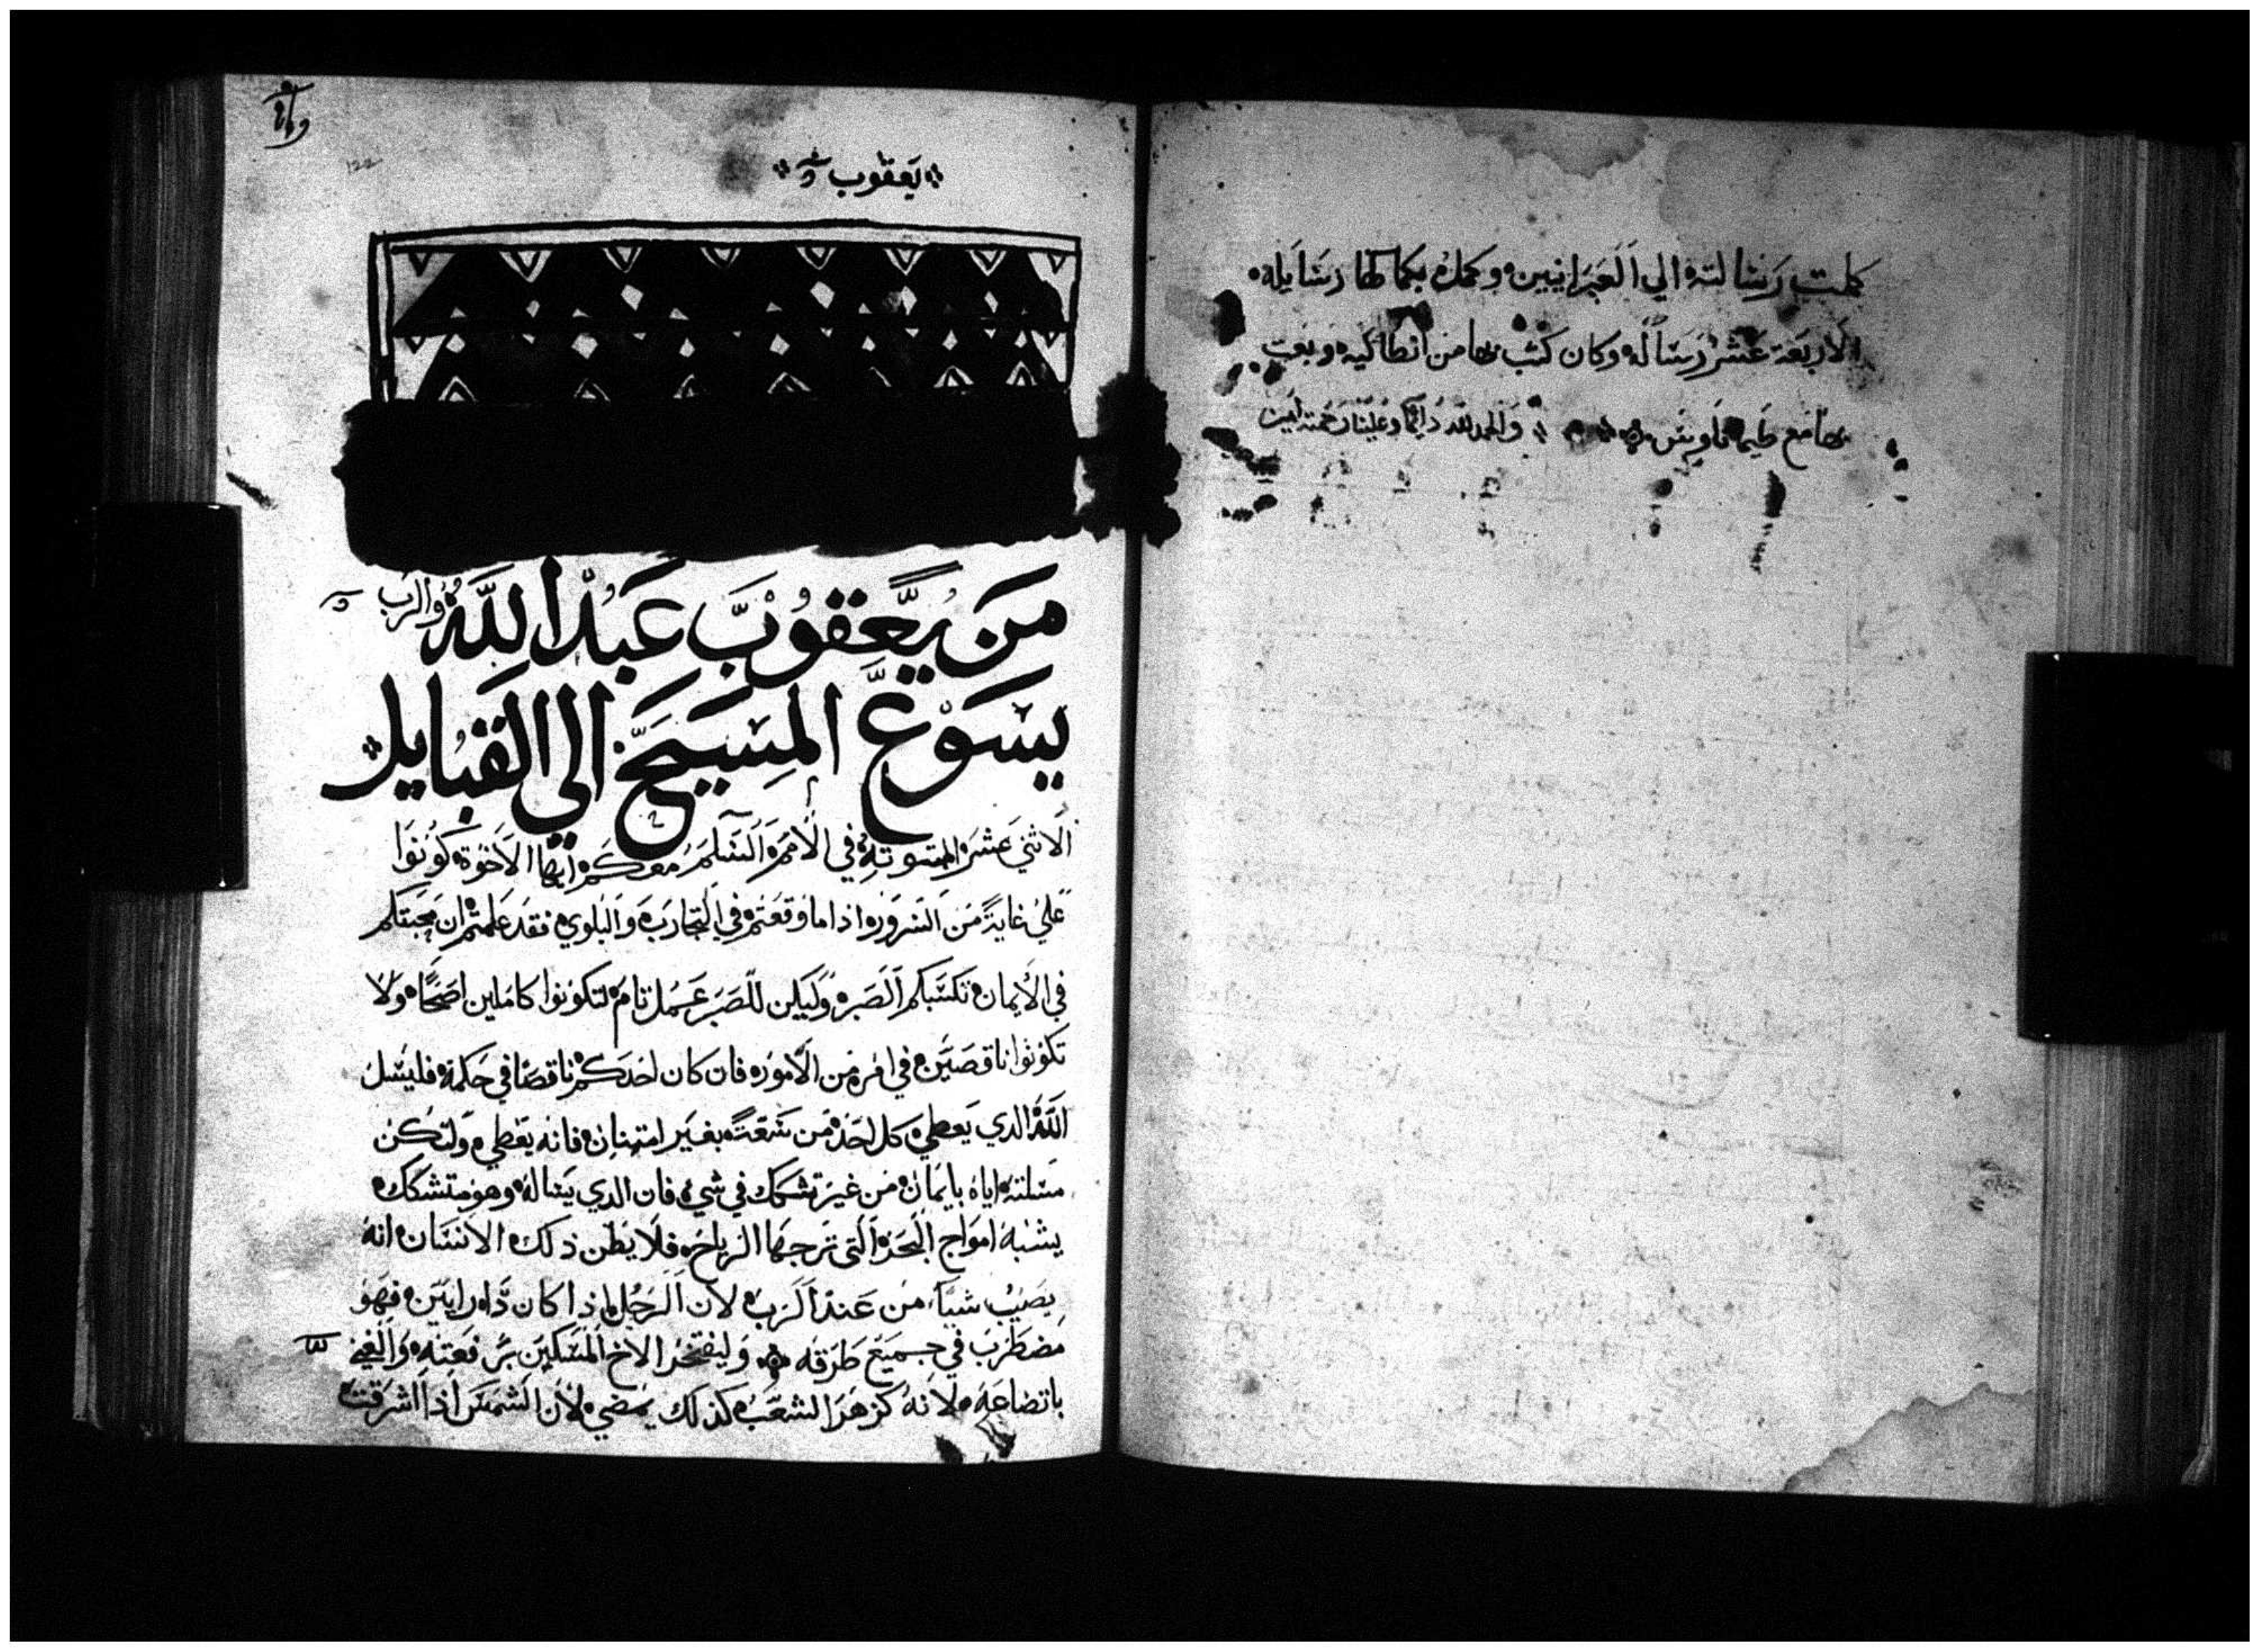 كملت رسالته الي العبرانيين وكمل بكمالها رسايله
الاربعة عشر رسالة وكان كتب بها من انطاكيه وبعت
بها مع طيماتاوس والحمد لله دايما وعلينا رحمته امين
يعقوب
122
من يعقوب عبد الله والرب
يسوع المسيح الي القبايل
الاثني عشر المبتوتة في الامم السلم معكم ايها الاخوة كونوا
علي غاية من السرور اذا ما وقعتم في التجارب والبلوي فقد علمتم ان محبتكم
في الايمان تكسبكم الصبر وليكن للصبر عمل تام لتكونوا كاملين اصحا ولا
تكونوا ناقصين في امر من الامور فان كان احدكم ناقصا في حكمة فليسل
الله الدي يعطي كل احد من سعة بغير امتنان فانه يعطي ولتكن
مسلته اياه بايمان من غير تشكك في شي فان الدي يساله وهو متشكك
يشبه امواج البحر التي ترجها الرياح فلا يظن ذلك الانسان انه
يصيب شيا من عند الرب لان الرجل اذا كان ذا رايين فهو
مضطرب في جميع طرقه وليفتخر الاخ المسكين برفعته والغني
باتضاعه لانه كزهر العشب كذلك يمضي لان الشمس اذا اشرقت